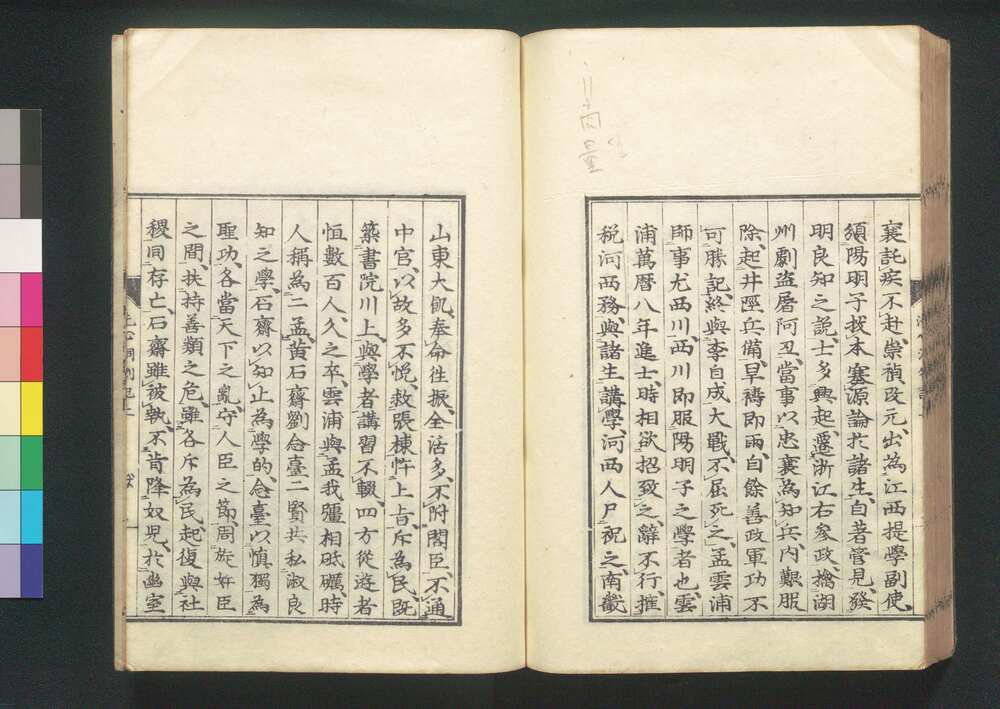 襄託疾不赴、崇禎改元、出為江西提學副使、
頒陽明子抜本塞源論於諸生、自著管見、發
明良知之説、士多興起、遷浙江右參政、擒湖
州劇盜屠阿丑、當事以忠襄為知兵、内艱服
除、起井陘兵備、旱禱即雨、自餘善政軍功不
可勝記、終與李自成大戰、不屈死之、孟雲浦
師事尤西川、西川即服陽明子之學者也、雲
浦萬曆八年進士、時相欲招致之、辭不行、搉
税河西務、與諸生講學、河西人尸祝之、南畿
山東大飢、奉命往振、全活多、不附閣臣、不通
中官、以故多不悦、救張棟忤上旨、斥為民、既
築書院川上、與學者講習不輟、四方從遊者
恒數百人、久之卒、雲浦與孟我疆相砥礪、時
人稱為二孟、黄石齋劉念臺二賢共私淑良
知之學、石齋以知止為學的、念臺以慎獨為
聖功、各當天下之亂、守人臣之節、周旋奸臣
之間、扶持善類之危、雖各斥為民、起復與社
稷同存亡、石齋雖被執、不肯降奴兒、於幽室